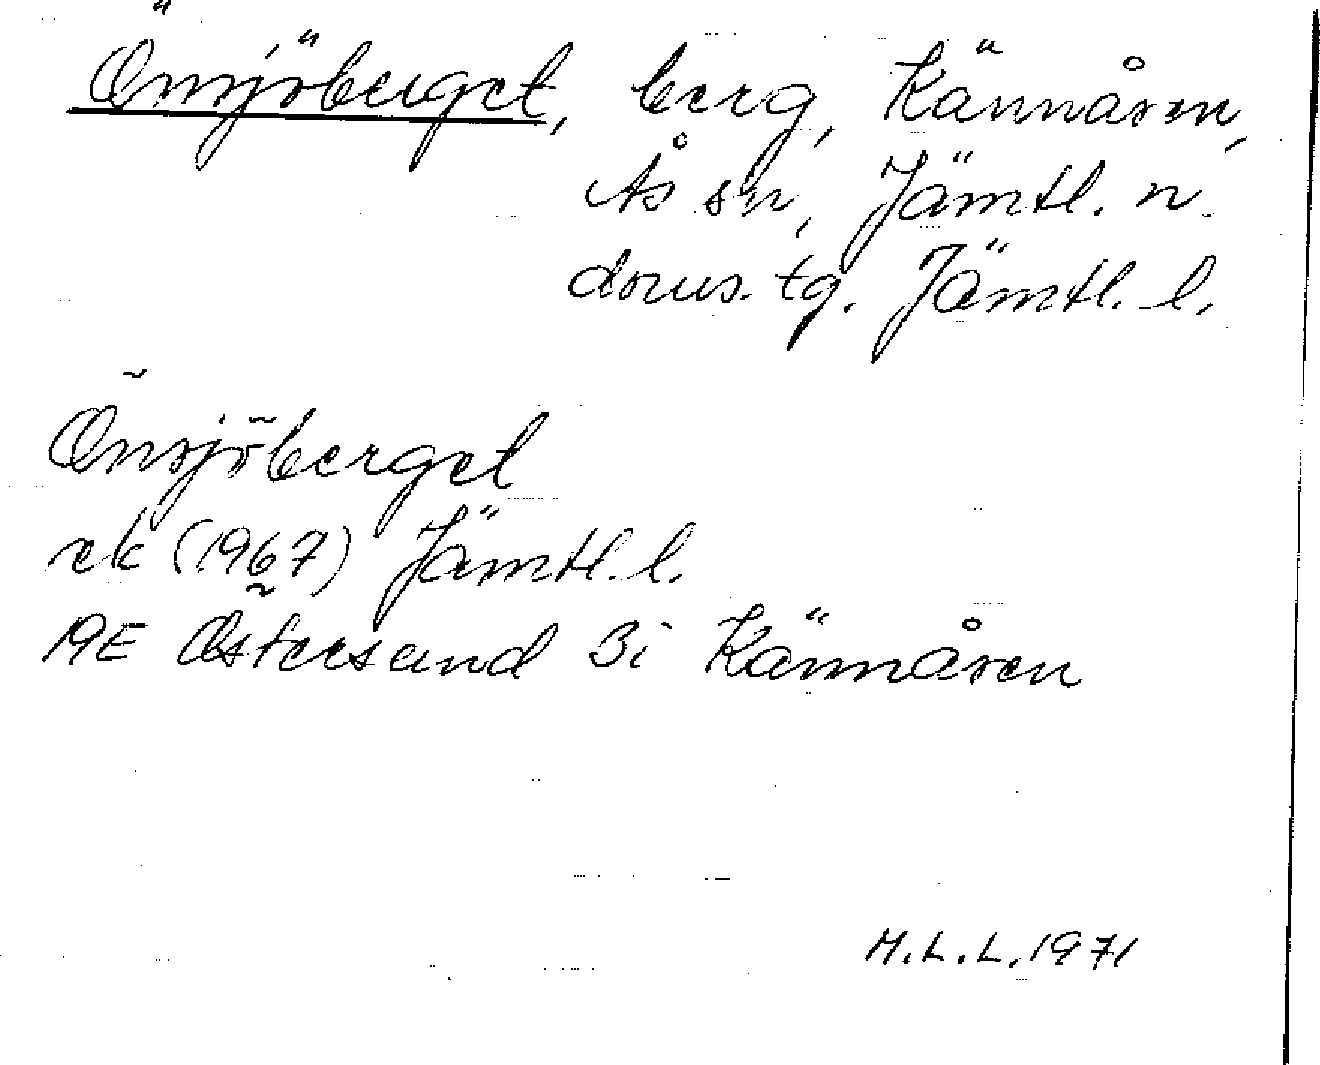 Önsjöberget, berg, Kännåsen,
Ås sn, Jämtl. n.
doms. tg. Jämtl. l.
Önsjöberget
ek (1967) Jämtl. l.
19E Östersund 3i Kännåsen
M.L.L. 1971